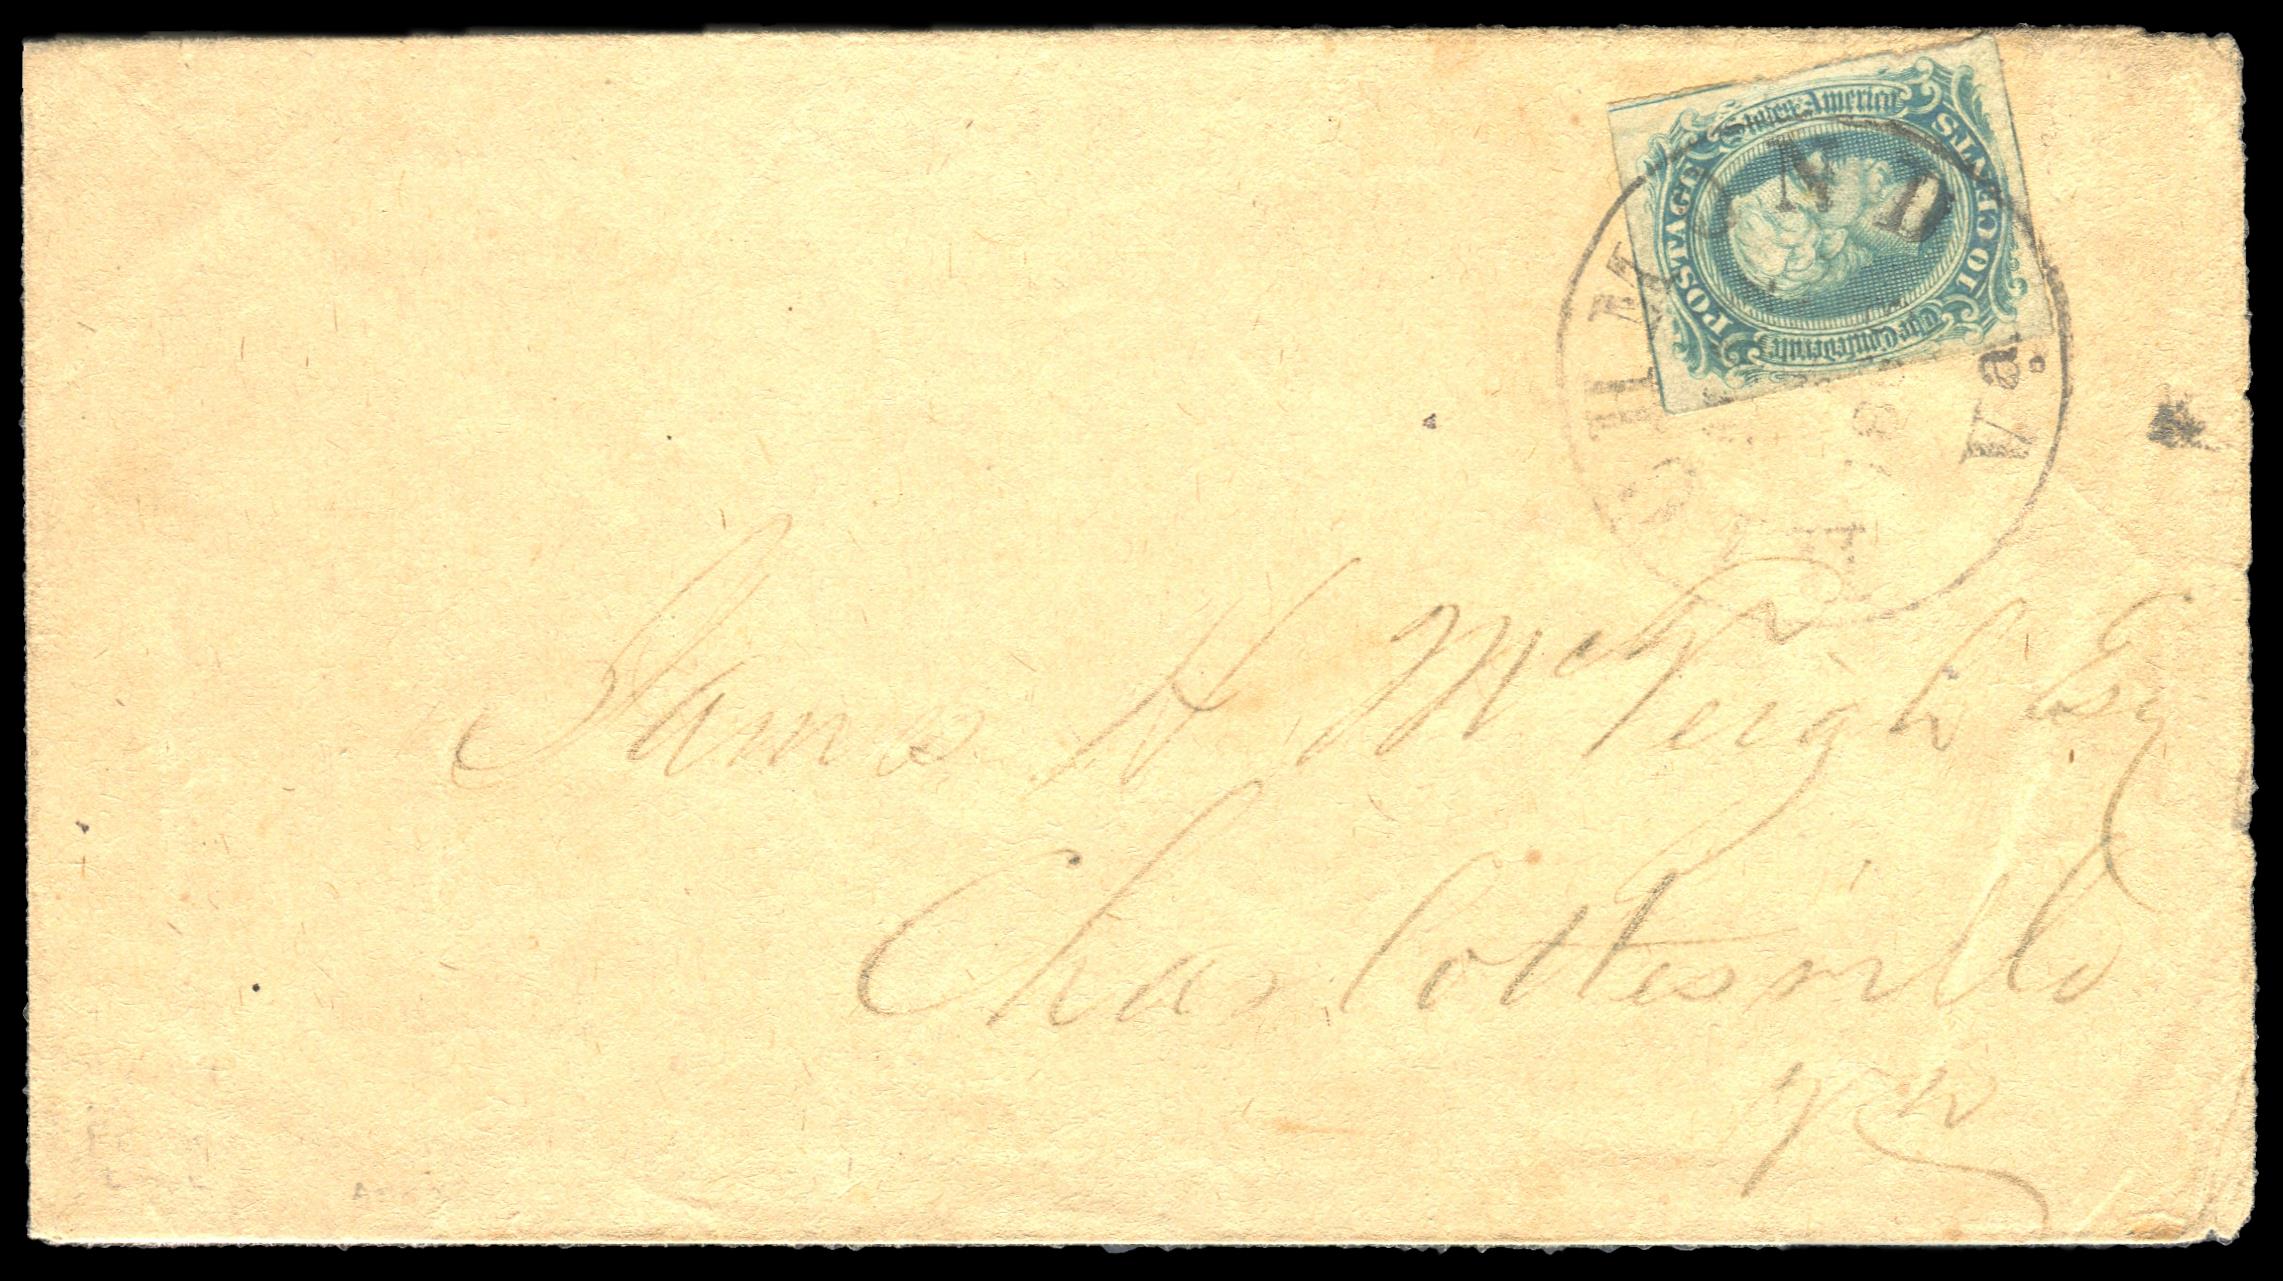 The Confederate States of America
POSTAGE
10 CENTS
RICHMOND
Va.
James H McVeigh Esq
Charlottesville
Va